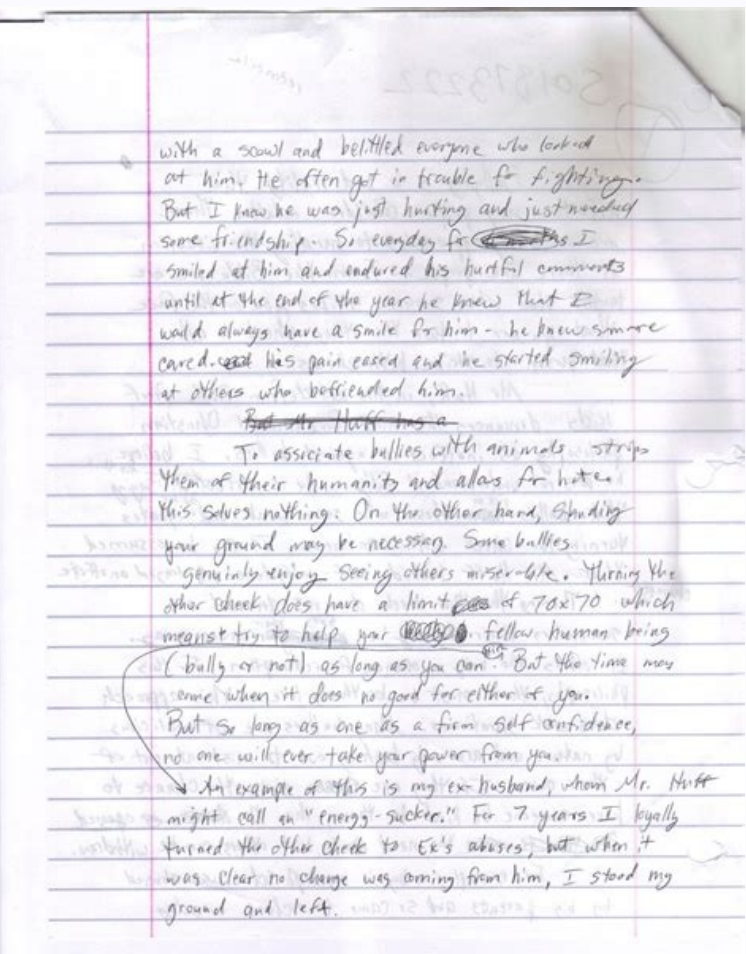 with a scowl and belittled everyone who looked
at him. He often got in trouble for fighting.
But I knew he was just hurting and just needed
some friendship. So everyday for I
smiled at him and endured his hurtful comments
until at the end of the year he knew that I
would always have a smile for him - he knew someone
cared. his pain eased and he started smiling
at others who befriended him.
But Mr. Huff has a
To assiciate bullies with animals strips
them of their humanity and allows for hate.
this solves nothing. On the other hand, standing
your ground may be necessary. Some bullies
genuinly enjoy seeing others miserable. Turning the
other cheek does have a limit of 70x70 which
means try to help your fellow human being
(bully or not) as long as you can. But the time may
come when it does no good for either of you.
But so long as one as a firm self confidence,
no one will ever take your power from you.
An example of this is my ex-husband, whom Mr. Huff
might call an "energy-sucker." For 7 years I loyally
turned the other cheek to Ex's abuses, but when it
was clear no change was coming from him, I stood my
ground and left.